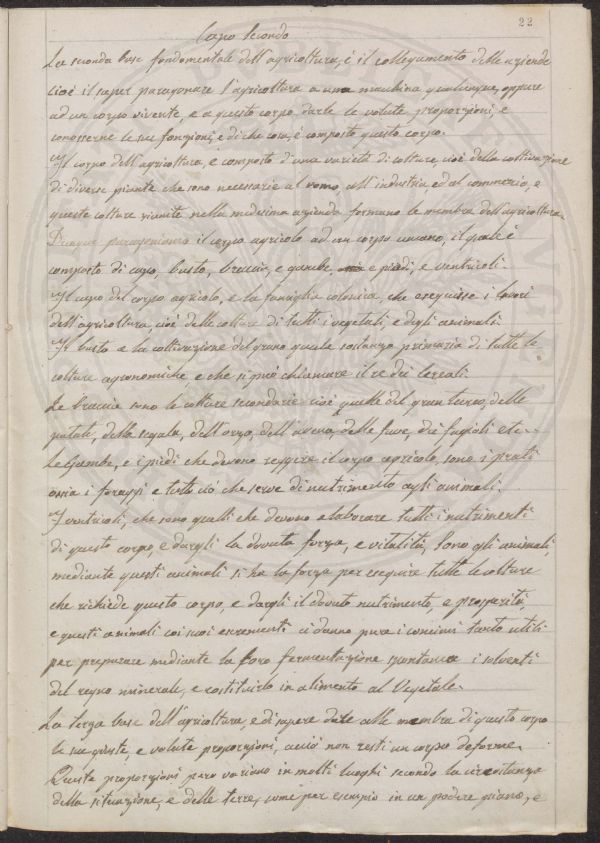 22
Capo Secondo
La seconda base fondamentale dell'agricoltura, è il collegamento delle aziende
cioè il saper paragonare l'agricoltura a una macchina qualunque, oppure
ad un corpo vivente, e a questo corpo, darle le volute proporzioni, e
conoscerne le sue fonzioni, e di che cosa, è composto questo corpo.
Il corpo dell'agricoltura, e composto d'una varietà di colture, cioè della coltivazione
di diverse piante che sono necessarie al uomo, all'industria, ed al commercio, e
queste colture riunite nella medesima azienda formano le membra dell'agricoltura.
Dunque paragoniamo il corpo agricolo ad un corpo umano, il quale è
composto di capo, busto, braccia, e gambe, e piedi, e ventricoli.
Il capo del corpo agricolo, e la famiglia colonica, che eseguisse i lavori
dell'agricoltura, cioè delle colture di tutti i vegetali, e degli animali.
Il busto e la coltivazione del grano quale sostanza primaria di tutte le
colture agronomiche, e che si può chiamare il re dei cereali.
Le braccia sono le colture secondarie cioè quelle del gran turco, delle
patate, della segala, dell'orzo, dell'avena, delle fave, dei fagioli etc.
Le Gambe, e i piedi che devono reggere il corpo agricolo, sono i prati
ossia i foraggi e tutto ciò che serve di nutrimento agli animali.
I ventricoli, che sono quelli che devono elaborare tutti i nutrimenti
di questo corpo, e dargli la dovuta forza, e vitalità, sono gli animali,
mediante questi animali si ha la forza per eseguire tutte le colture
che richiede questo corpo, e dargli il dovuto nutrimento, e prosperità,
e questi animali coi suoi escrementi ci danno pure i concimi tanto utili
per preparare mediante la loro fermentazione spontanea i solventi
del regno minerale, e costituirlo in alimento al Vegetale.
La terza base dell'agricoltura, e di sapere dare alle membra di questo corpo
le sue giuste, e volute proporzioni, acciò non resti un corpo deforme.
Queste proporzioni pero variano in molti luoghi secondo la circostanza
della situazione, e delle terre, come per esempio in un podere piano, e